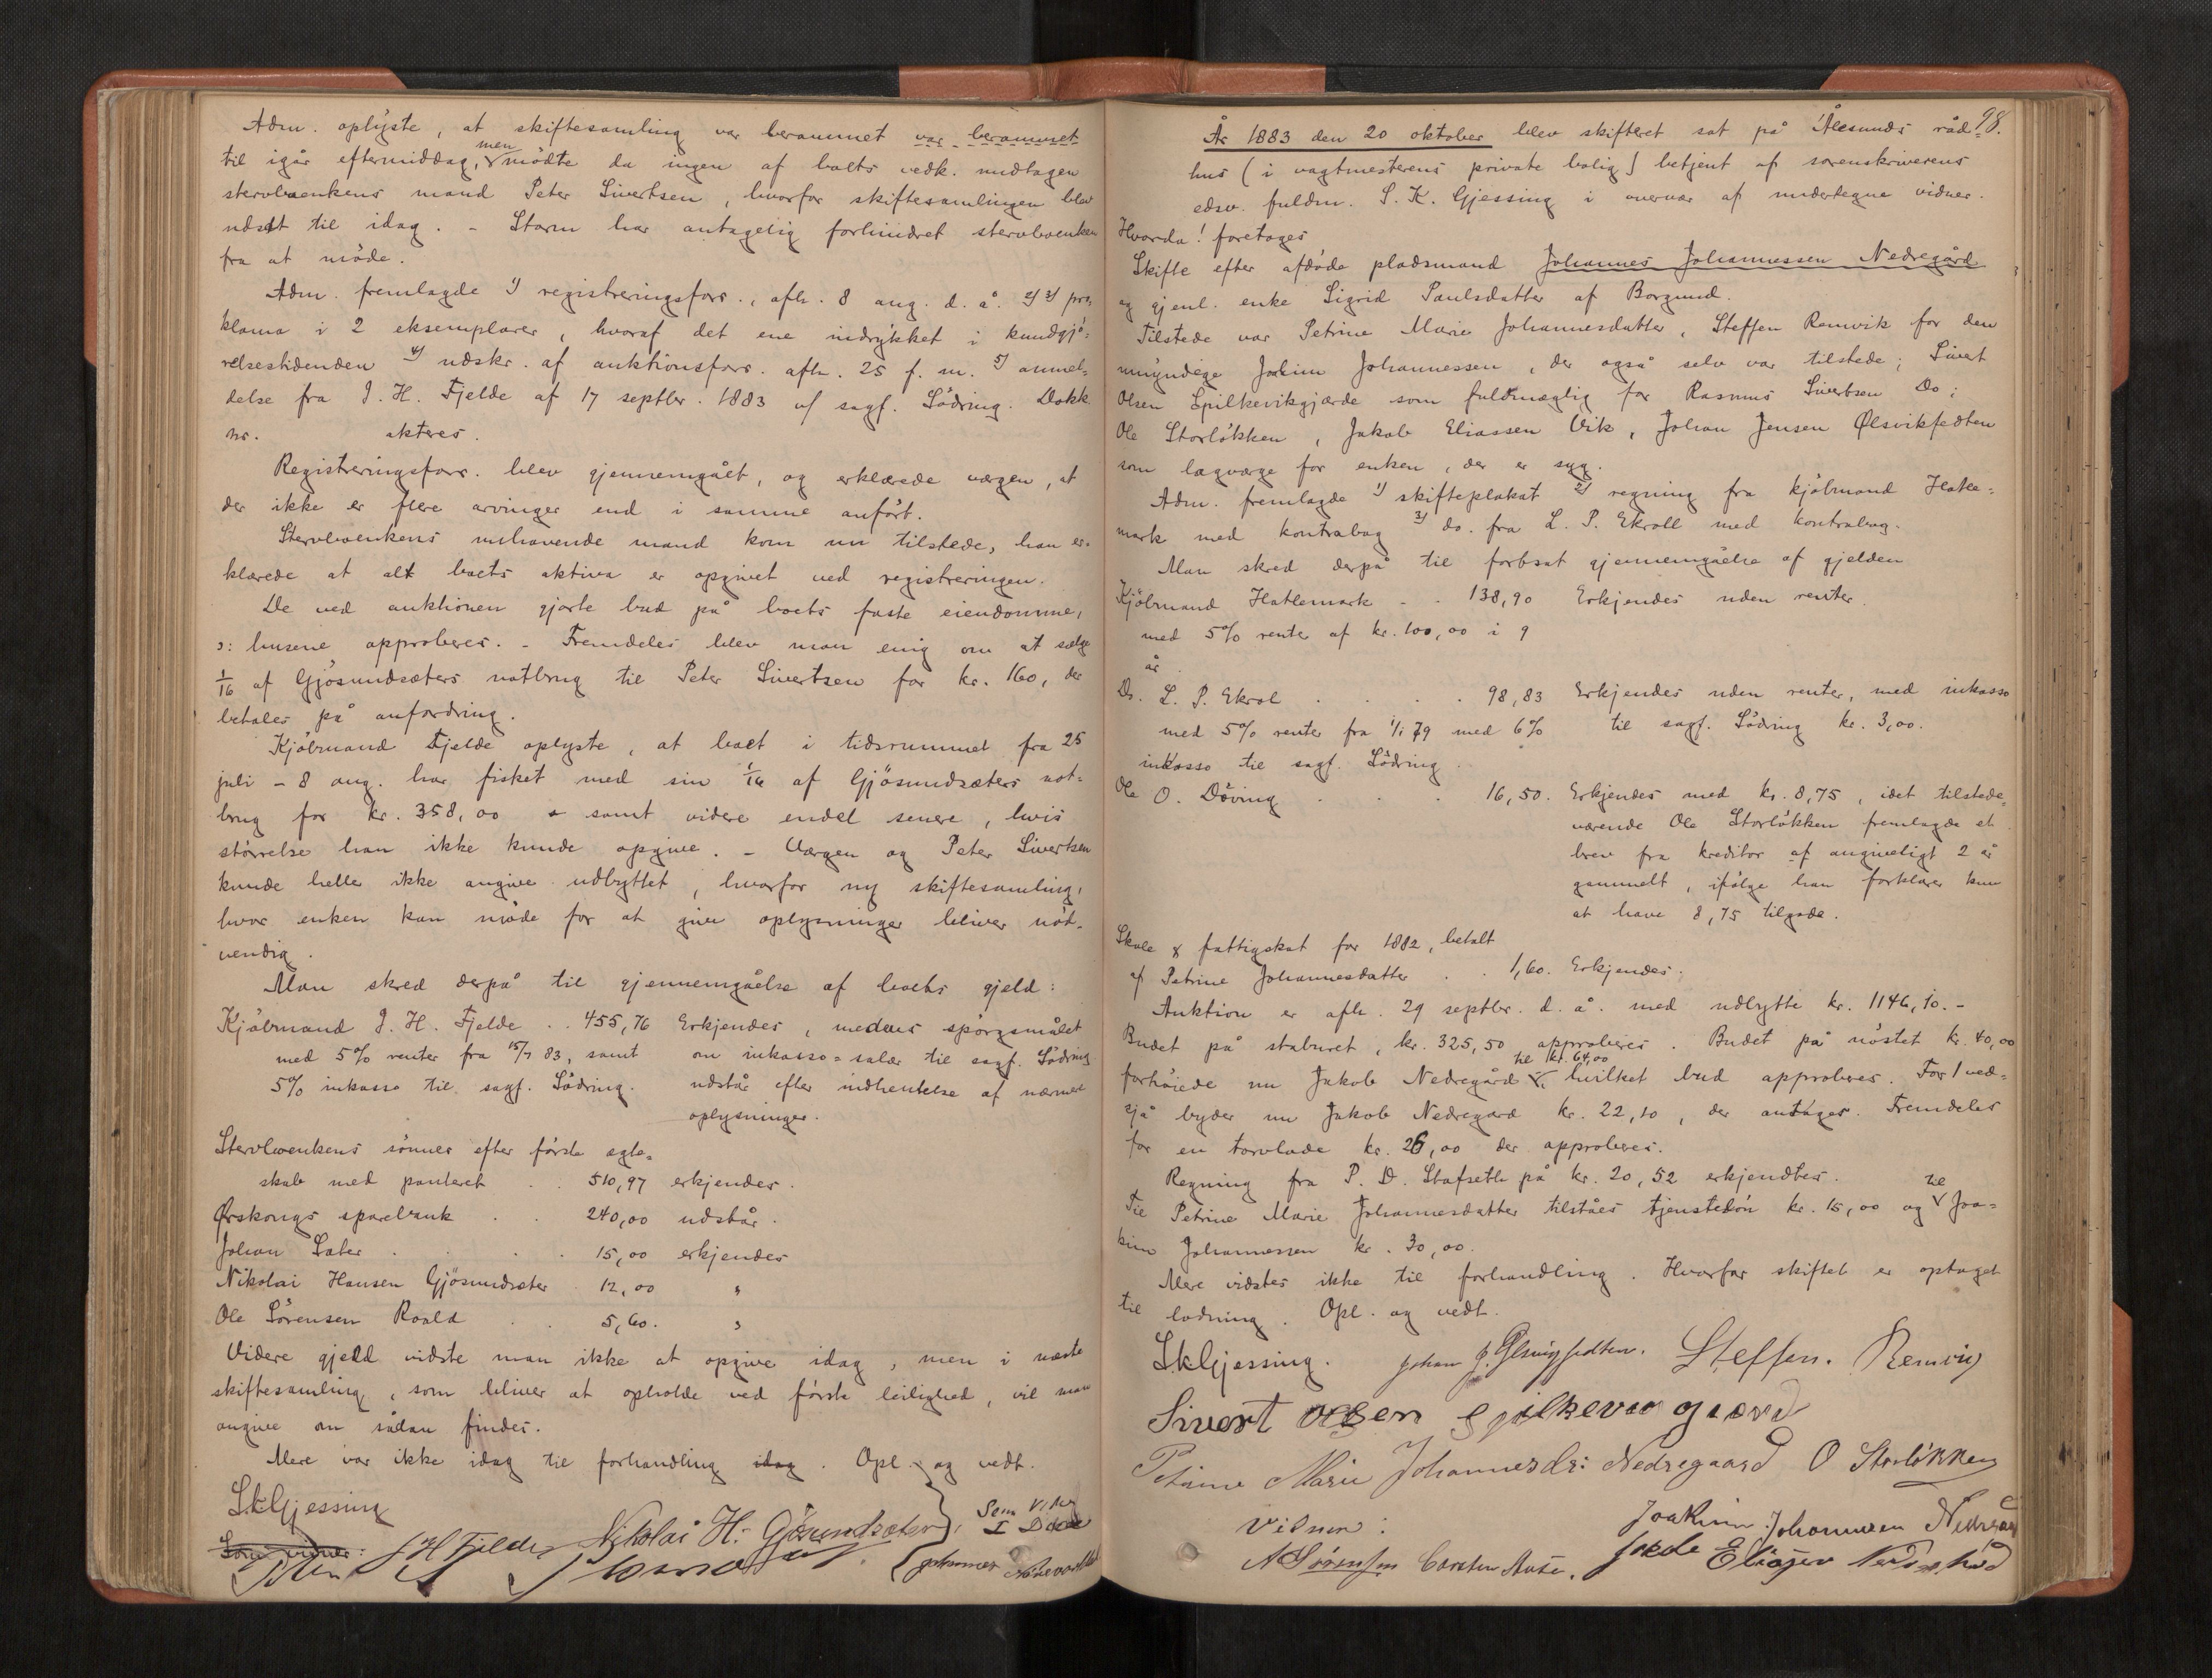 Adm. oplyste, at skiftesamling var berammet var berammet
til igår eftermiddag, men mødte da ingen af boets vedk. undtagen
stervboenkens mand Peter Sivertsen, hvorfor skiftesamlingen blev
udsat til idag. - Storm har antagelig forhindret stervboenken
fra at møde.
Adm. fremlagde 1) registreringsforr., afh. 8 aug. d. å. 2) 3) pro-
klama i 2 eksemplarer, hvoraf det ene indrykket i kundgjø-
relsestidenden 4) udskr. af auktionsforr. afh. 25 f. m. 5) anmel-
delse fra J. H. Fjelde af 17 septbr. 1883 v/ sagf. Lödring. Dokk.
no. akteres.
Registreringsforr. blev gjennemgået, og erklærede værgen, at
der ikke er flere arvinger end i samme anført.
Stervboenkens nuhavende mand kom nu tilstede, han er-
klærede at alt boets aktiva er opgivet ved registreringen.
De ved auktionen gjorte bud på boets faste eiendomme,
ɔ: husene approberes. - Fremdeles blev man enig om at sælge
1/16 af Gjøsundsæters notbrug til Peter Sivertsen for kr. 160, der
betales på anfordring.
Kjøbmand Fjelde oplyste, at boet i tidsrummet fra 25
juli - 8 aug. har fisket med sin 1/16 af Gjøsundsæters not-
brug for kr. 358,00 samt videre endel senere, hvis
størrelse han ikke kunde opgive. - Værgen og Peter Sivertsen
kunde heller ikke angive udbyttet, hvorfor ny skiftesamling,
hvor enken kan møde for at give oplysninger bliver nød-
vendig.
Man skred derpå til gjennemgåelse af boets gjeld:
Kjøbmand J. H. Fjelde . . 455,76 Erkjendes, medens spørgsmålet
med 5% renter fra 15/7 83, samt om inkasso-salær til sagf. Lödring
5% inkasso til sagf. Lödring. udstår efter indhentelse af nærmere
oplysninger.
Stervboenkens sønner efter første ægte-
skab med panteret . . 510,97 erkjendes.
Ørskougs sparebank . . 240,00 udstår.
Johan Sæter . . . . 15,00 erkjendes
Nikolai Hansen Gjøsundsæter . 12,00 "
Ole Sørensen Roald . . 5,60. "
Videre gjeld vidste man ikke at opgive idag, men i næste
skiftesamling, som bliver at afholde ved første leilighed, vil man
angive om sådan findes.
Mere var ikke idag til forhandling idag. Opl. og vedt.
S.K.Gjessing
Som vidner:
J H Fjelde Nikolai H. Gjøsundsæter Som Vidner
Johannes
98.
År 1883 den 20 oktober blev skifteret sat på Ålesunds råd-
hus (i vagtmesterens private bolig) betjent af sorenskriverens
edsv. fuldm. S. K. Gjessing i overvær af undertegne vidner.
Hvorda! foretages
Skifte efter afdøde pladsmand Johannes Johannessen Nedregård
og gjenl. enke Sigrid Paulsdatter af Borgund.
Tilstede var Petrine Marie Johannesdatter, Steffen Remvik for den
umyndige Joakim Johannessen, der også selv var tilstede; Sivert
Olsen Spilkevikgjærde som fuldmægtig for Rasmus Sivertsen Do;
Ole Storløkken, Jakob Eliassen Vik, Johan Jensen Ølsvikfedten
som lagværge for enken, der er syg.
Adm. fremlagde 1) skifteplakat 2) regning fra kjøbmand Hatle-
mark med kontrabog 3) do. fra L. P. Ekroll med kontrabog.
Man skred derpå til fortsat gjennemgåelse af gjelden
Kjøbmand Hatlemark - . 138,90 Erkjendes uden renter.
med 5% renter af kr. 100,00 i 9
år.
Do. L. P. Ekrol . . . 98,83 Erkjendes uden renter, med inkasso
med 5% renter fra 1/1 79 med 6% til sagf. Lödring kr. 3,00.
inkasso til sagf. Lödring.
Ole O. Døving . . . 16,50. Erkjendes med kr. 8,75, idet tilstede-
værende Ole Storløkken fremlagde et
brev fra kreditor af angiveligt 2 år
gammelt, ifølge han forklarer kun
at have 8,75 tilgode.
Skole & fattigskat for 1882, betalt
af Petrine Johannesdatter . . 1,60. Erkjendes.
Auktion er afh. 29 septbr. d. å. med udbytte kr. 1146,10. -
Budet på staburet, kr. 325,50 approberes. Budet på nøstet kr. 40,00
forhøiede nu Jakob Nedregård til kr. 64,00 hvilket bud approberes. For 1 ved-
sjå byder nu Jakob Nedregård kr. 22,10, der antages. Fremdeles
for en torvlade kr. 26,00 der approberes.
Regning fra P. D. Stafseth på kr. 20,52 erkjendtes.
Til Petrine Marie Johannesdatter tilståes tjenesteløn kr. 15,00 og til Joa-
kim Johannessen kr. 30,00.
Mere vidstes ikke til forhandling. Hvorfor skiftet er optaget
til lodning. Opl. og vedt.
S.K.Gjessing. Johan J. Ølsvigfedten. Steffen. Remvig
Sivert olsen spilkevig giærd
Petrine Marie Johannesdr: Nedregaard O Storløkken
Vidner: Joakim Johannesen Nedregaard
A Sørensen Carsten Aase. Jakob Eliasen